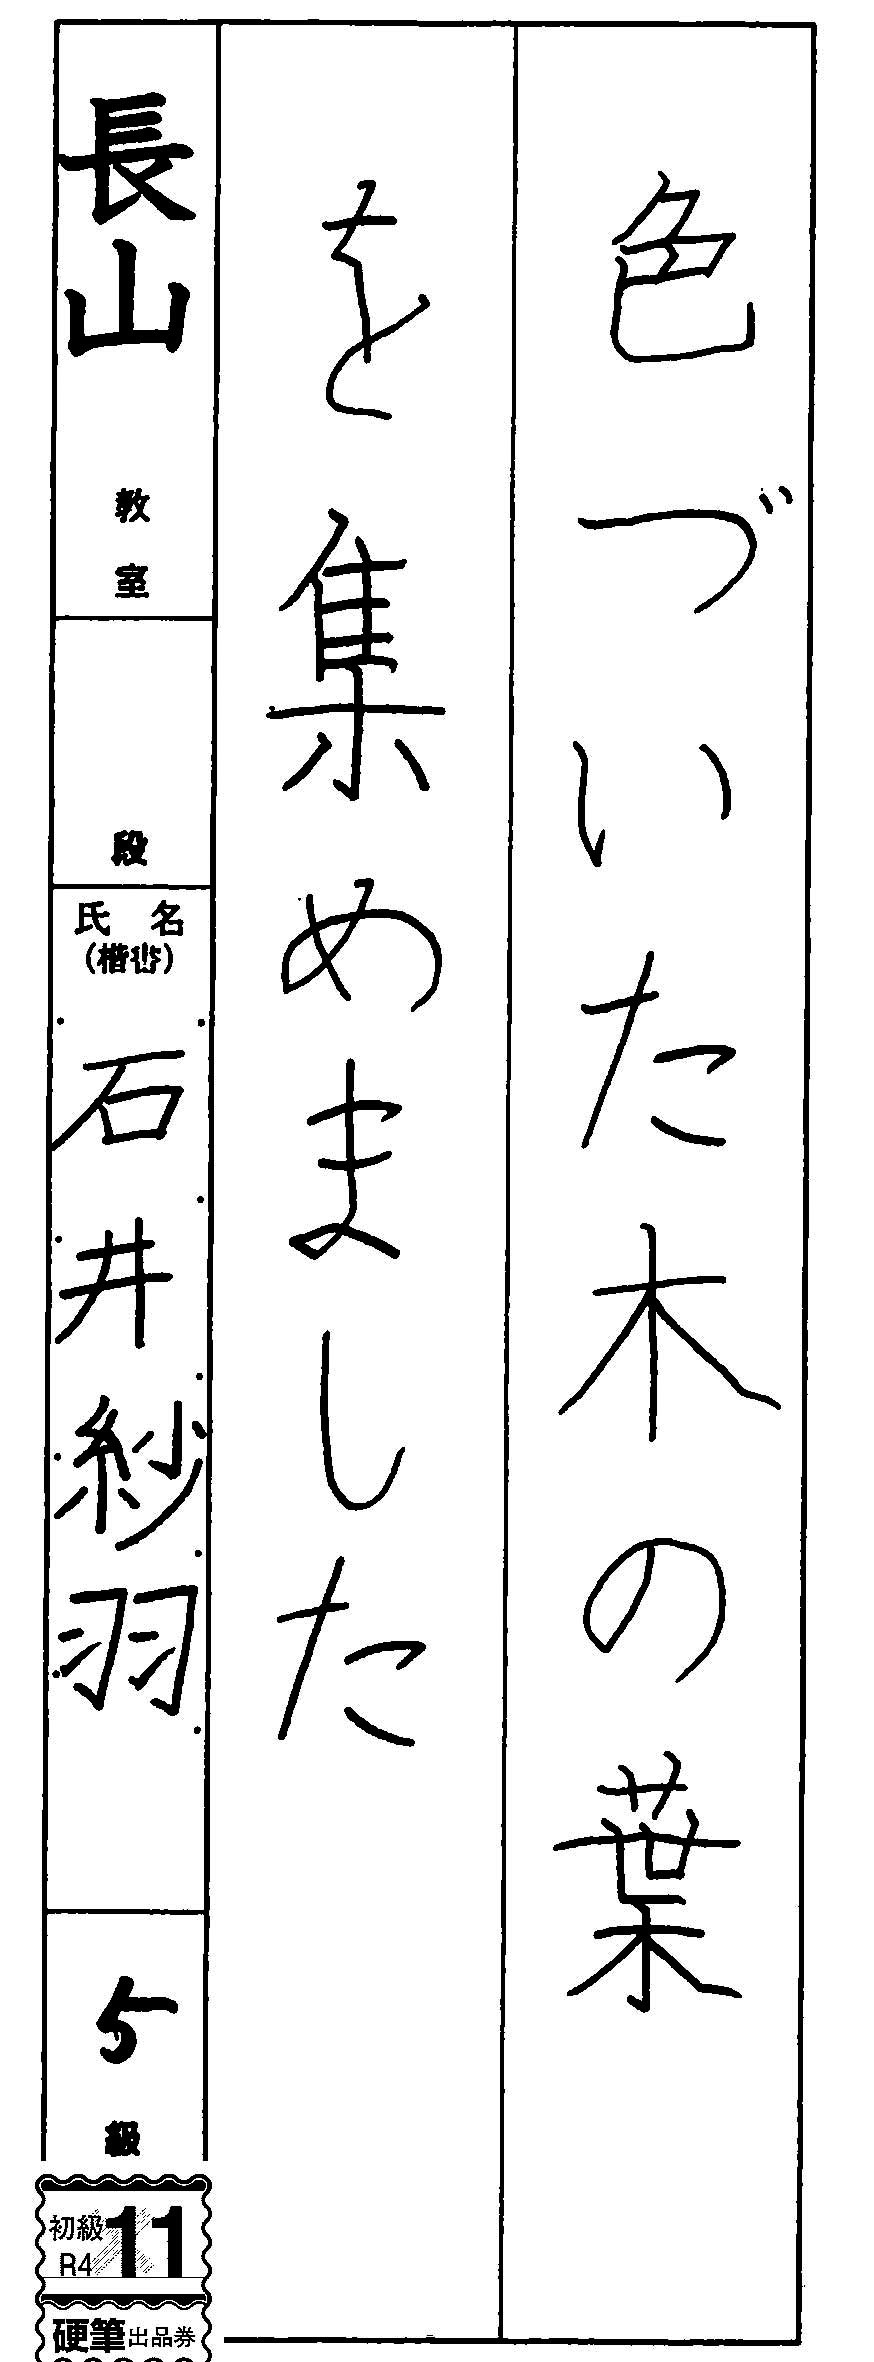 色づいた木の葉
を集めました
長山
教室
段
氏名
(楷書)
石井紗羽
5
級
初級
R4
11
硬筆出品券